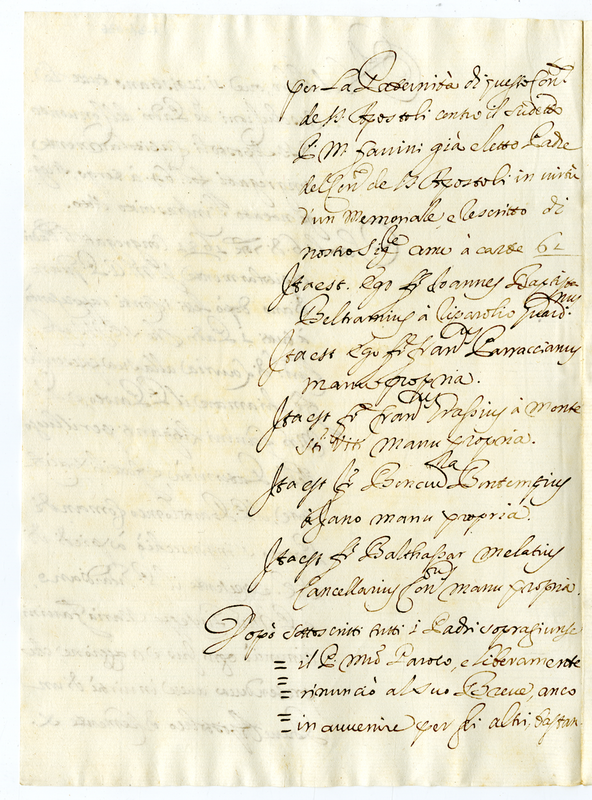 per La Paternità di questo Con.to
de SS Apostoli contro il sudetto
P. M. Favini già eletto Padre
del Con.to de SS Apostoli in virtù
d'un Memoriale, e Rescritto di
nostro Sig.re ame à carte 62
Ita est. Ego fr Joannes Baptista
Beltramius à Guard.nus
Ita est Ego fr. Fran.cus Parraccianus
manu propria.
Ita est fr. Fran.cus Grassius à Monte
S.ti Viti manu propria.
Ita est fr. Bontempius
à Jano manu propria.
Ita est fr. Balthassar Melatius
Cancellarius Con.tus manu propria.
Dopò sottoscritti tutti i Padri sopragiunse
il P. M.ro Paroco, e liberamente
rinunciò al suo Breve, anco
in avvenire per gli altri,